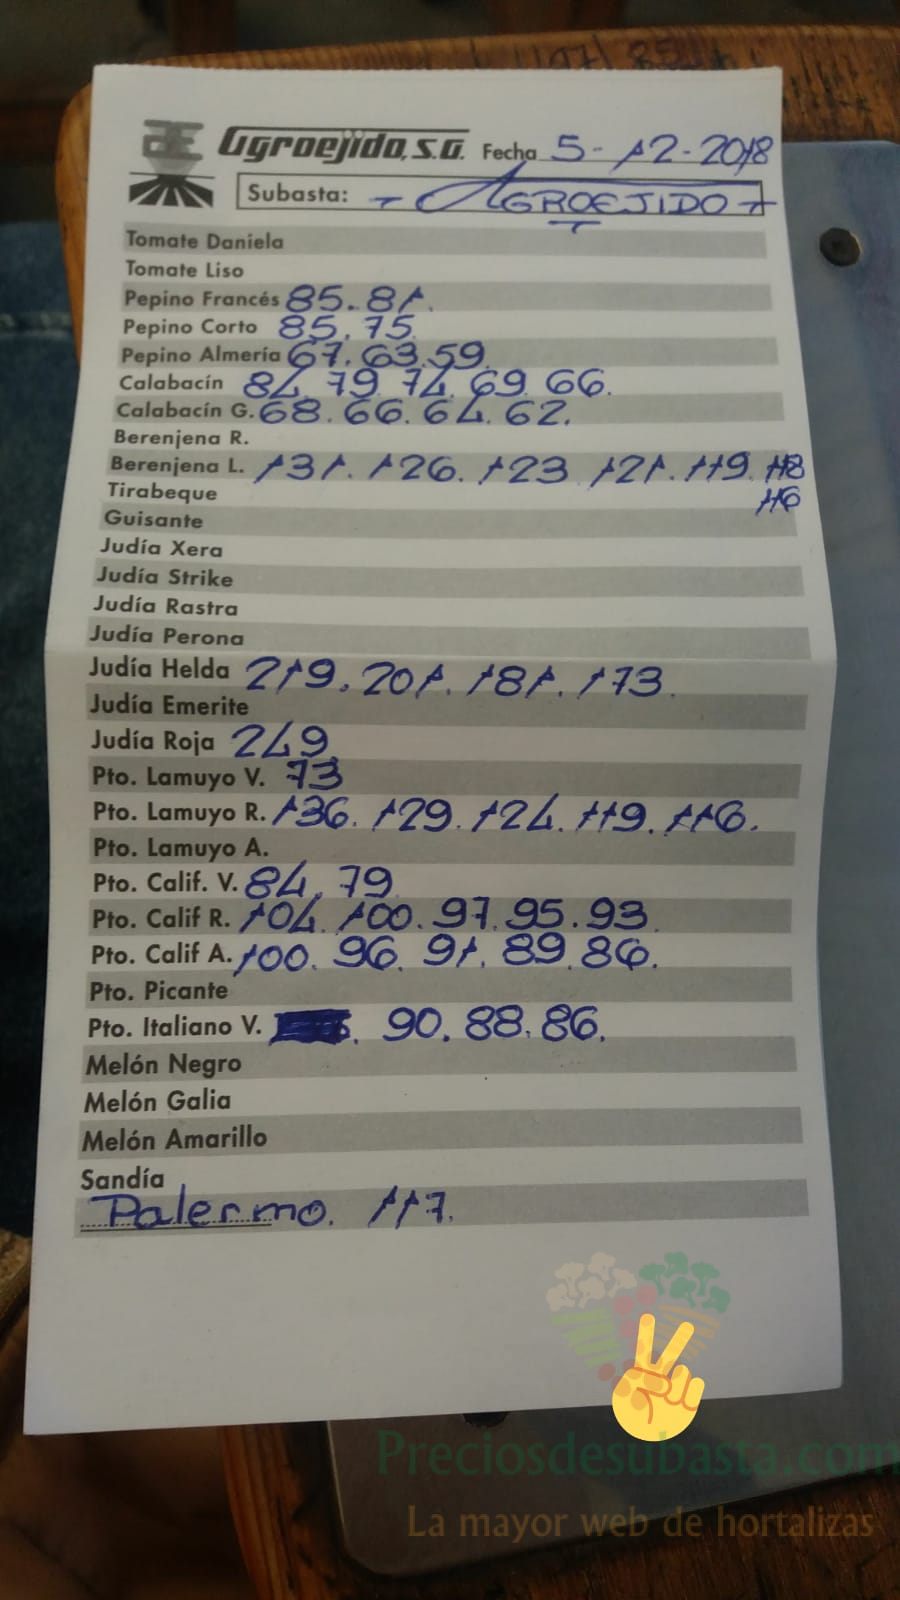 Agroejido, S.A. Fecha 5-12-2018
Subasta: - AGROEJIDO -
Tomate Daniela
Tomate Liso
Pepino Francés 85. 81.
Pepino Corto 85. 75
Pepino Almería 67. 63. 59
Calabacín 84. 79. 74. 69. 66.
Calabacín G. 68. 66. 64. 62.
Berenjena R.
Berenjena L. 131. 126. 123. 121. 119. 118
116
Tirabeque
Guisante
Judía Xera
Judía Strike
Judía Rastra
Judía Perona
Judía Helda 219. 201. 181. 173.
Judía Emerite
Judía Roja 249
Pto. Lamuyo V. 73
Pto. Lamuyo R. 136. 129. 124. 119. 116.
Pto. Lamuyo A.
Pto. Calif. V. 84. 79
Pto. Calif R. 104. 100. 97. 95. 93.
Pto. Calif A. 100. 96. 91. 89. 86.
Pto. Picante
Pto. Italiano V. 90. 88. 86.
Melón Negro
Melón Galia
Melón Amarillo
Sandía
Palermo. 117.
Preciosdesubasta.com
La mayor web de hortalizas